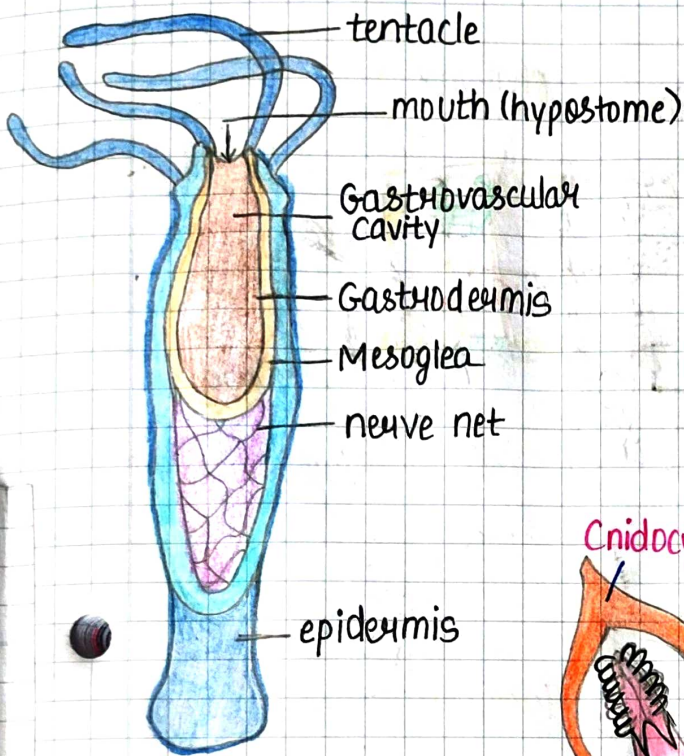 tentacle
mouth (hypostome)
Gastrovascular
cavity
Gastrodermis
Mesoglea
nerve net
Cnidoc
epidermis